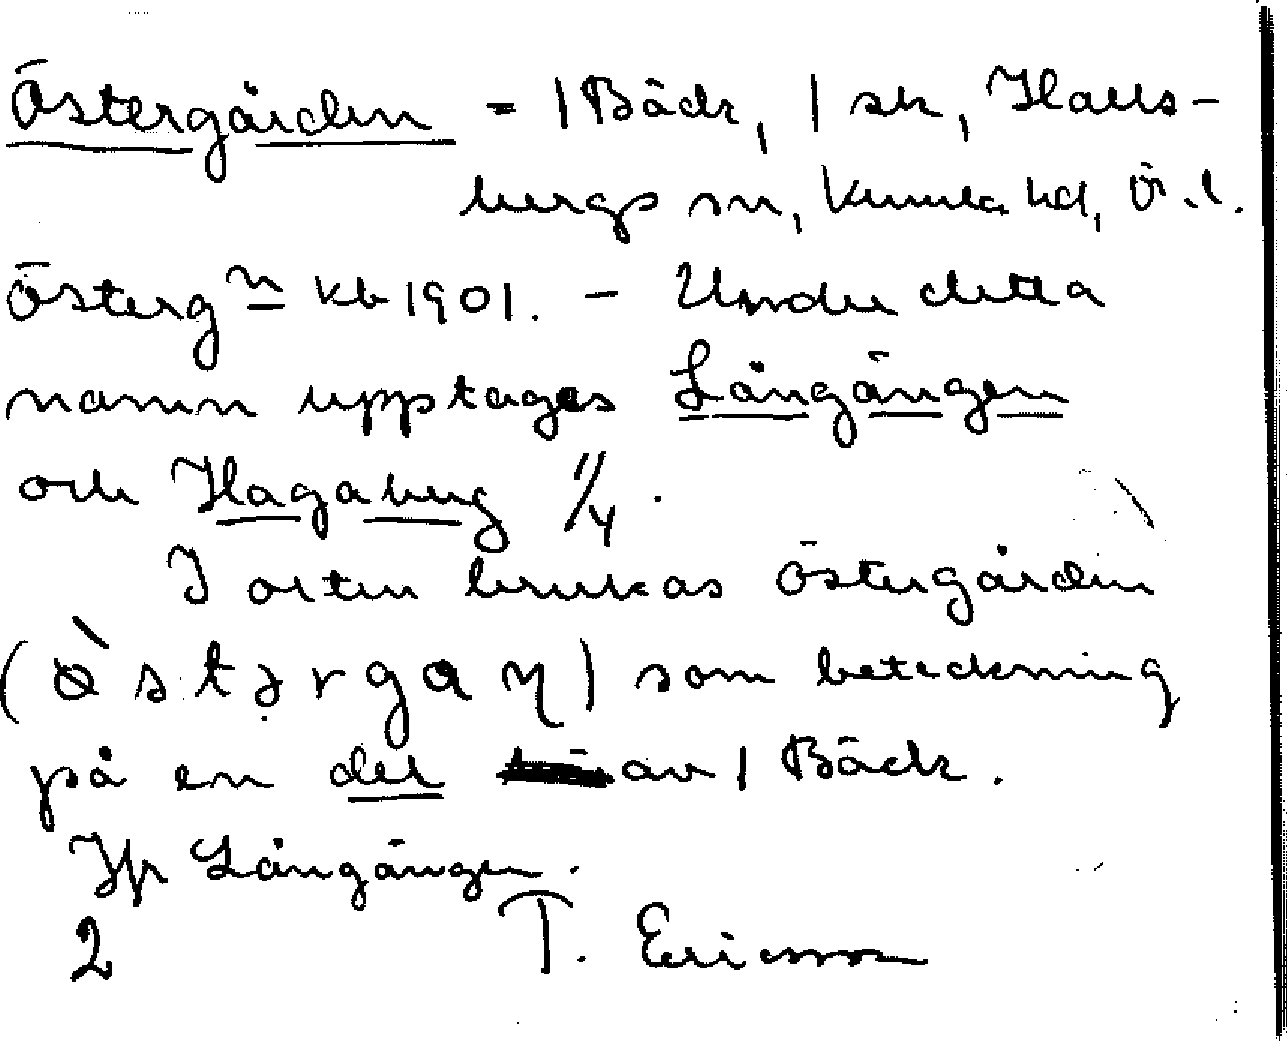 Östergården = 1 Bäck, 1 sk, Halls-
bergs sn, Kumla hd, Ö.l.
Österg n kb 1901. - Under detta
namn upptages Långängen
och Hagaberg 1/4.
I orten brukas Östergården
(ö̀stərgaɳ) som beteckning
på en del av 1 Bäck.
Jfr Långängen.
2 T. Ericsson